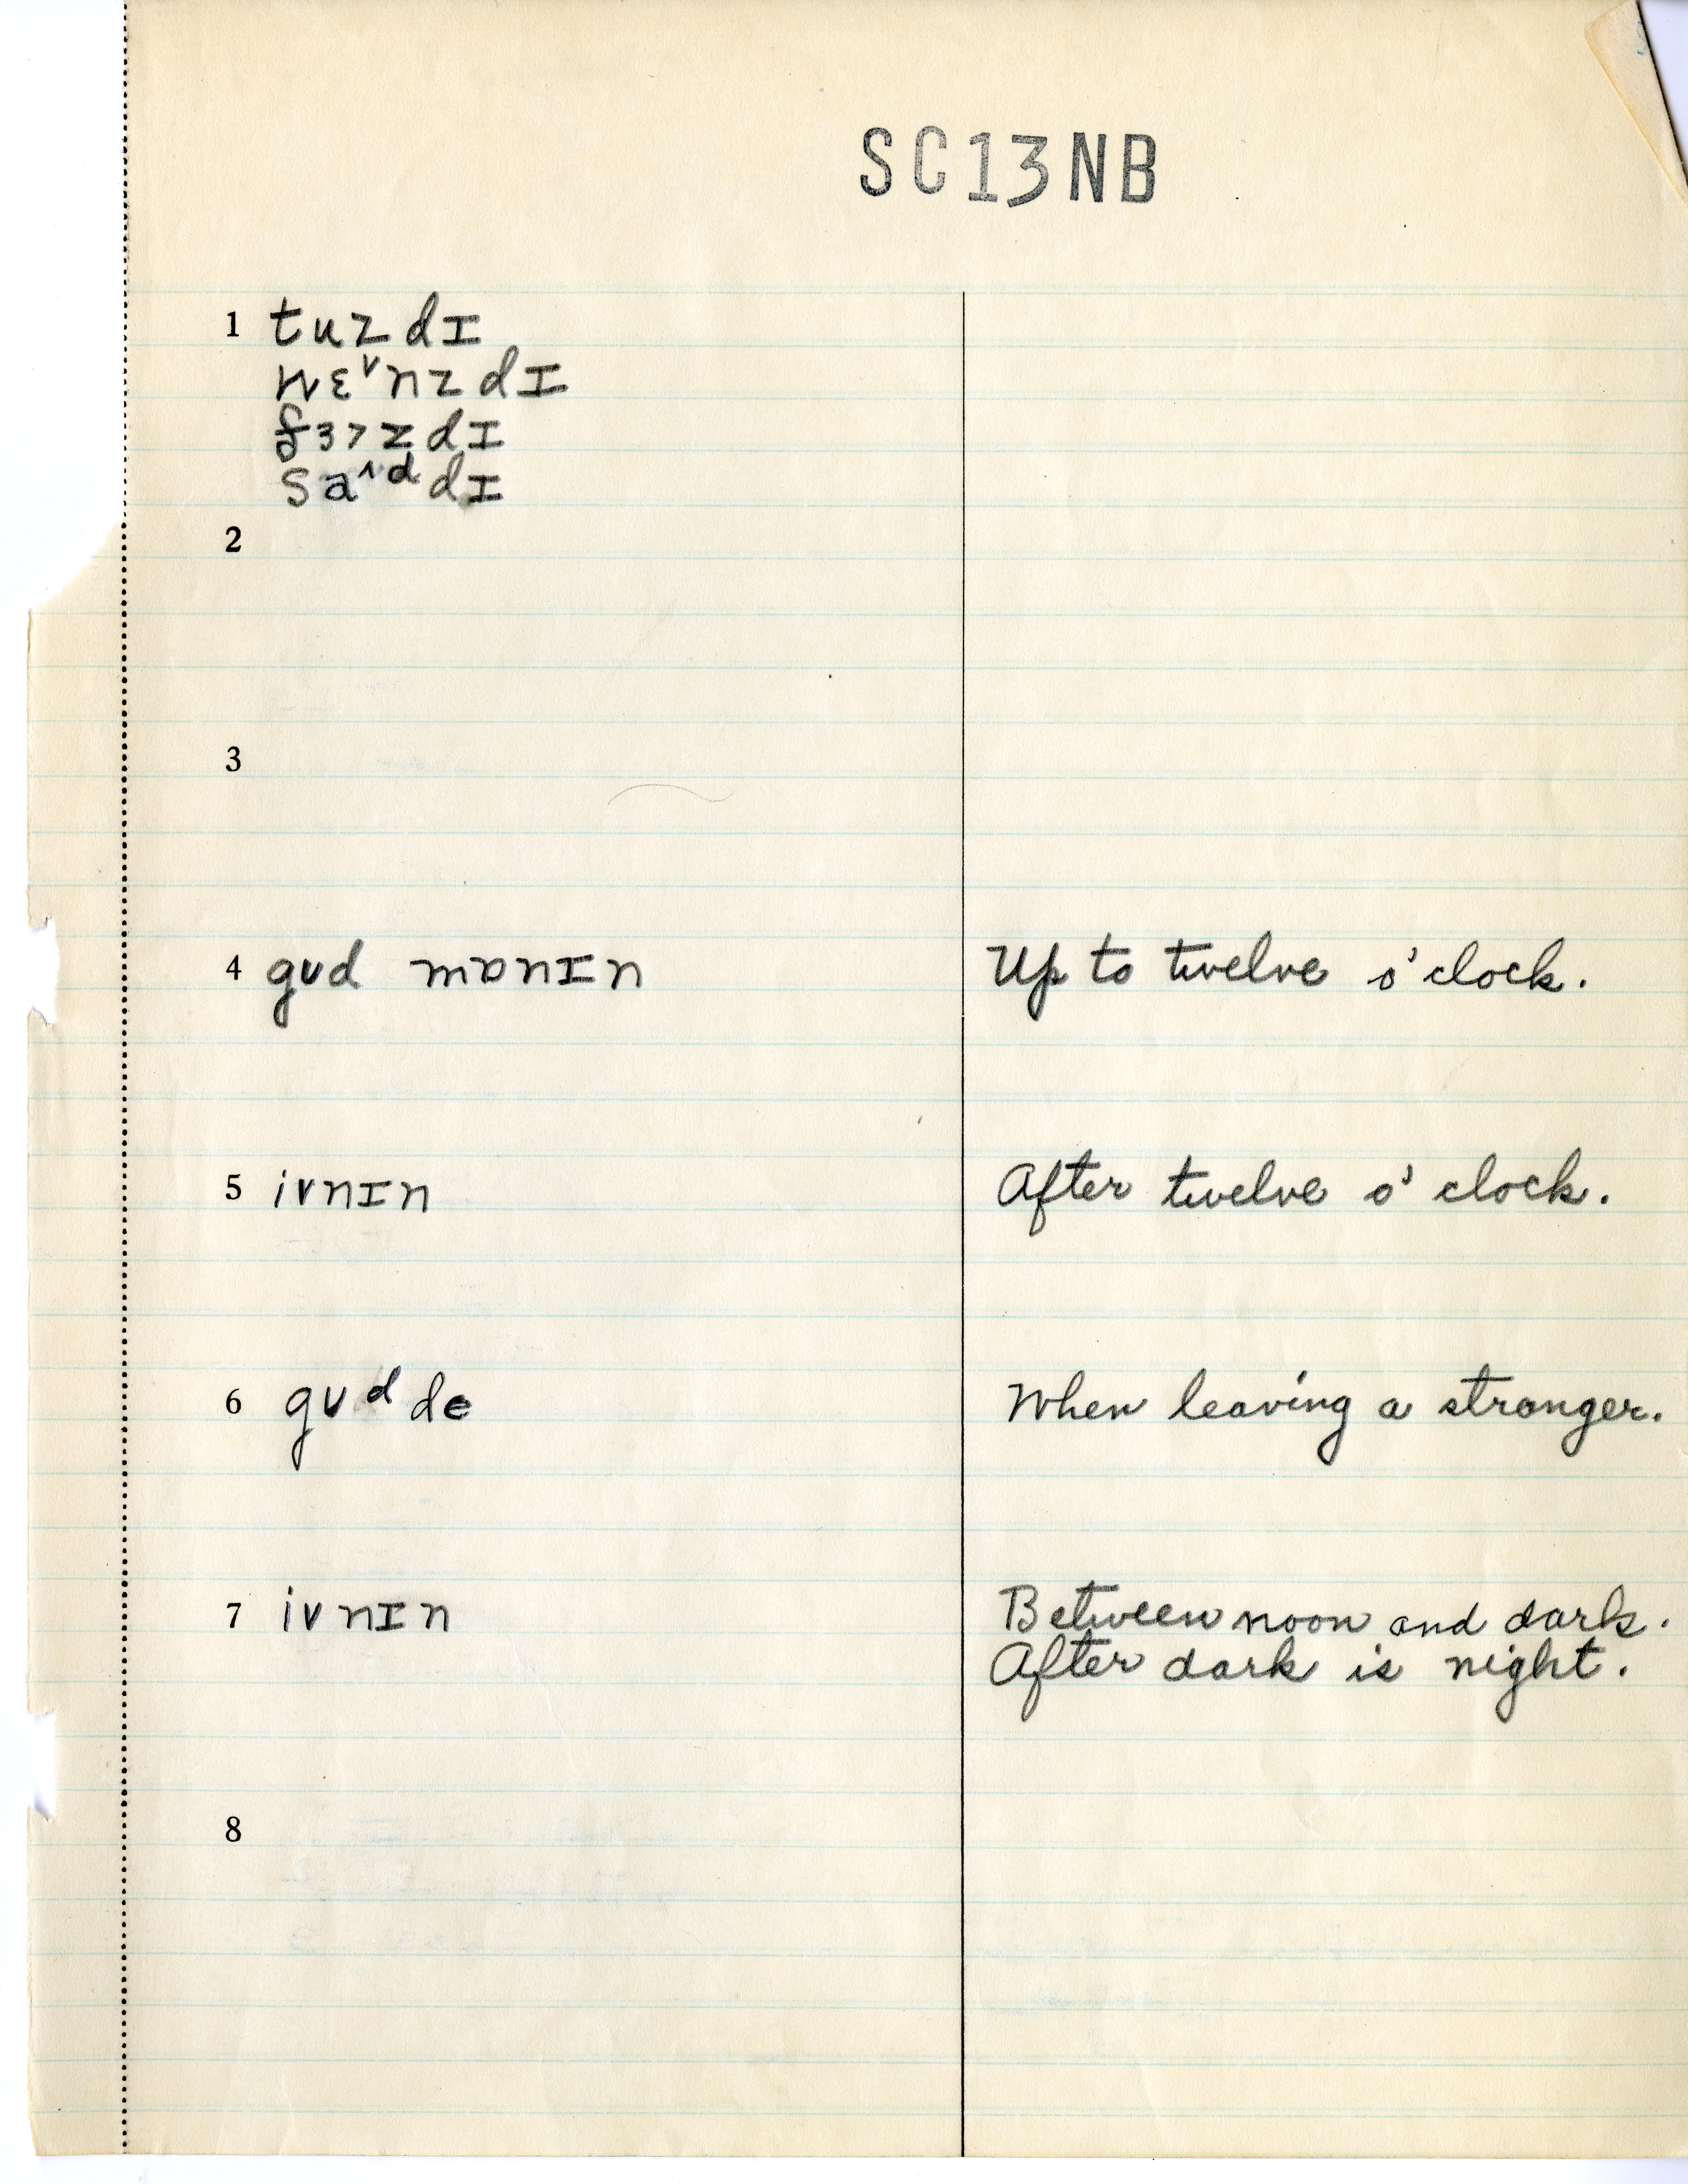 SC13NB
1 tuzdɪ
wɛ˅nzdɪ
fɜ˃zdɪ
sa˄ᵈdɪ
2
3
4 gʊd mɒnɪn Up to twelve o'clock.
5 ivnɪn After twelve o'clock.
6 gʊᵈde When leaving a stranger.
7 ivnɪn Between noon and dark.
After dark is night.
8